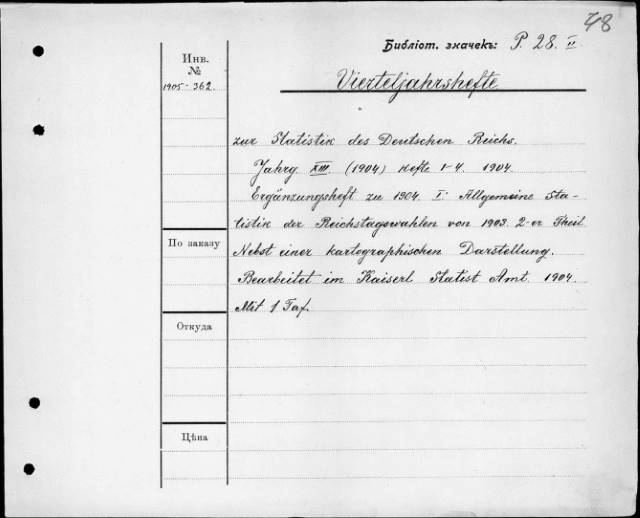 48
Библіот. значекъ: P. 28. II.
Инв.
№
1905-362.
Vierteljahrshefte
zur Statistik des Deutschen Reichs.
Jahrg XIII. (1904) Hefte 1-4. 1904.
Ergänzungsheft zu 1904. I. Allgemeine Sta-
tistik der Reichstagswahlen von 1903. 2-er Theil
Nebst einer kartographischen Darstellung.
По заказу
Bearbeitet im Kaiserl Statist Amt. 1904.
Mit 1 Taf.
Откуда
Цѣна